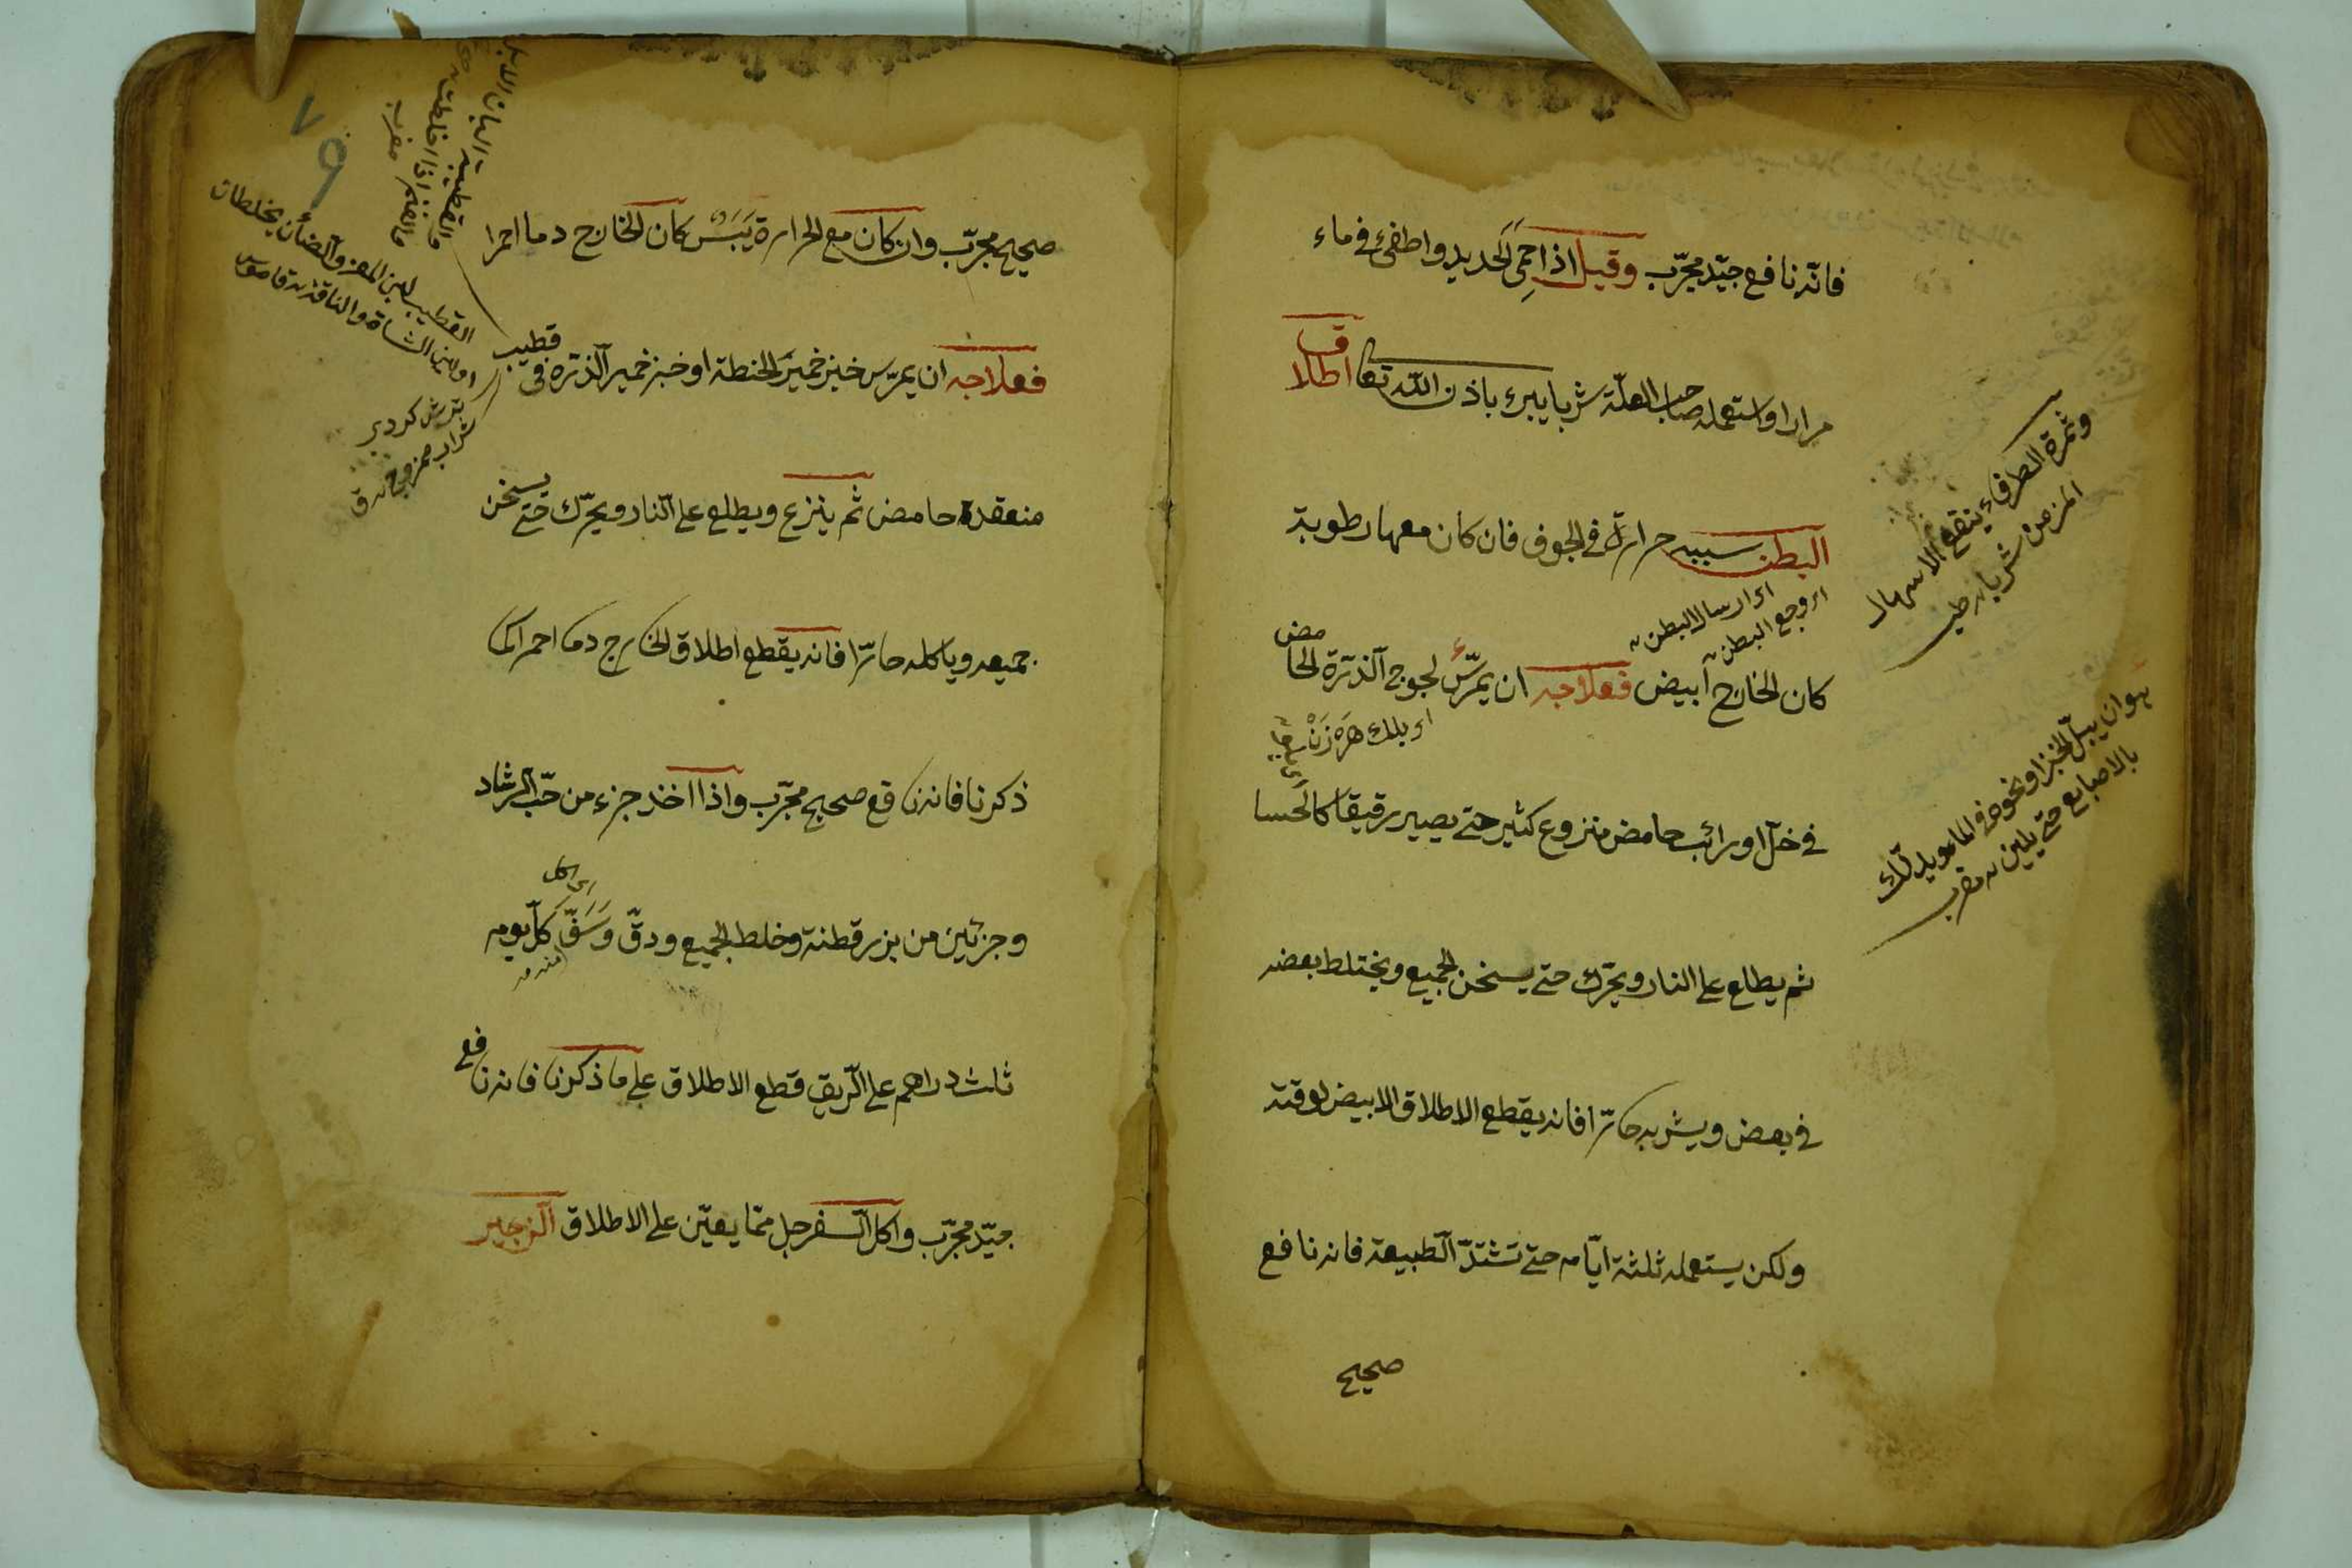 فانّه نافع جيّد مجرّب وقيل اذا احمى الحديد واطفئ فى ماء
مرارا واستعمله صاحب العلّة شربا يبرء باذن اللّه تعا اطلاق
البطن سببه حرارة فى الجوف فان كان معها رطوبة
كان الخارج ابيض فعلاجه ان يمرّس لحوج الذرّة الحامض
فى خلّ او رائب حامض منزوع كثير حتى يصير رقيقا كالحسا
ثم يطلع على النار ويحرّك حتى يسخن الجميع ويختلط بعضه
فى بعض ويشربه حارّا فانه يقطع الاطلاق الابيض لوقته
ولكن يستعمله ثلثة ايّام حتى تشتدّ الطبيعة فانه نافع
صحيح
وثمرة الطرفاء ينقع الاسهال
المزمن شربا
اى ارسال البطن
اى وجع البطن
هو ان يبلّ الخبز او نحوه فى الماء ويدلّك
بالاصابع حتى يلين
صحيح مجرّب وان كان مع الحرارة يبس كان الخارج دما احمرا
فعلاجه ان يمرّس خبز خمير الحنطة او خبز خمير الذرّة فى قطيب
منعقدة حامض ثم ينزع ويطلع على النار ويحرّك حتى يسخن
جميعه وياكله حارّا فانه يقطع اطلاق الخارج دما احمرا كما
ذكرنا فانه نافع صحيح مجرّب واذا اخذ جزء من حبّ الرشاد
وجزئين من بزر قطنة وخلط الجميع ودقّ وسفّ كلّ يوم
اى اكل
منه
ثلث دراهم على الريق قطع الاطلاق على ما ذكرنا فانه نافع
جيّد مجرّب واكل السفرجل ممّا يعيّن على الاطلاق الزحير
القطيب لبن المعز والضأن يخلطان
او لبن الشاة والناقة قاموس
شراب ممزوج
٧٩